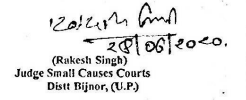 28/06/2020.
(Rakesh Singh)
Judge Small Causes Courts
Distt Bijnor, (U.P.)